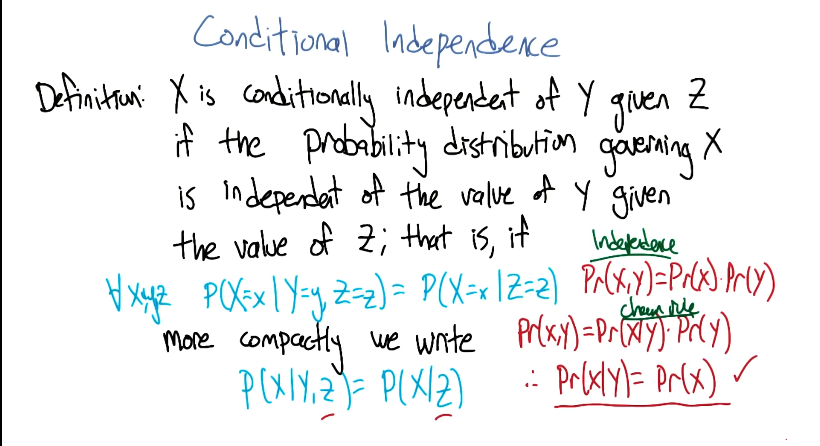 Conditional Independence
Definition: X is conditionally independent of Y given Z
if the probability distribution governing X
is independent of the value of Y given
the value of Z; that is, if
∀x,y,z P(X=x|Y=y, Z=z) = P(X=x|Z=z)
more compactly we write
P(X|Y,Z) = P(X|Z)
Independence
Pr(X,Y)=Pr(X)·Pr(Y)
chain rule
Pr(x,y)=Pr(x|y)·Pr(y)
∴ Pr(x|y)= Pr(x) ✓